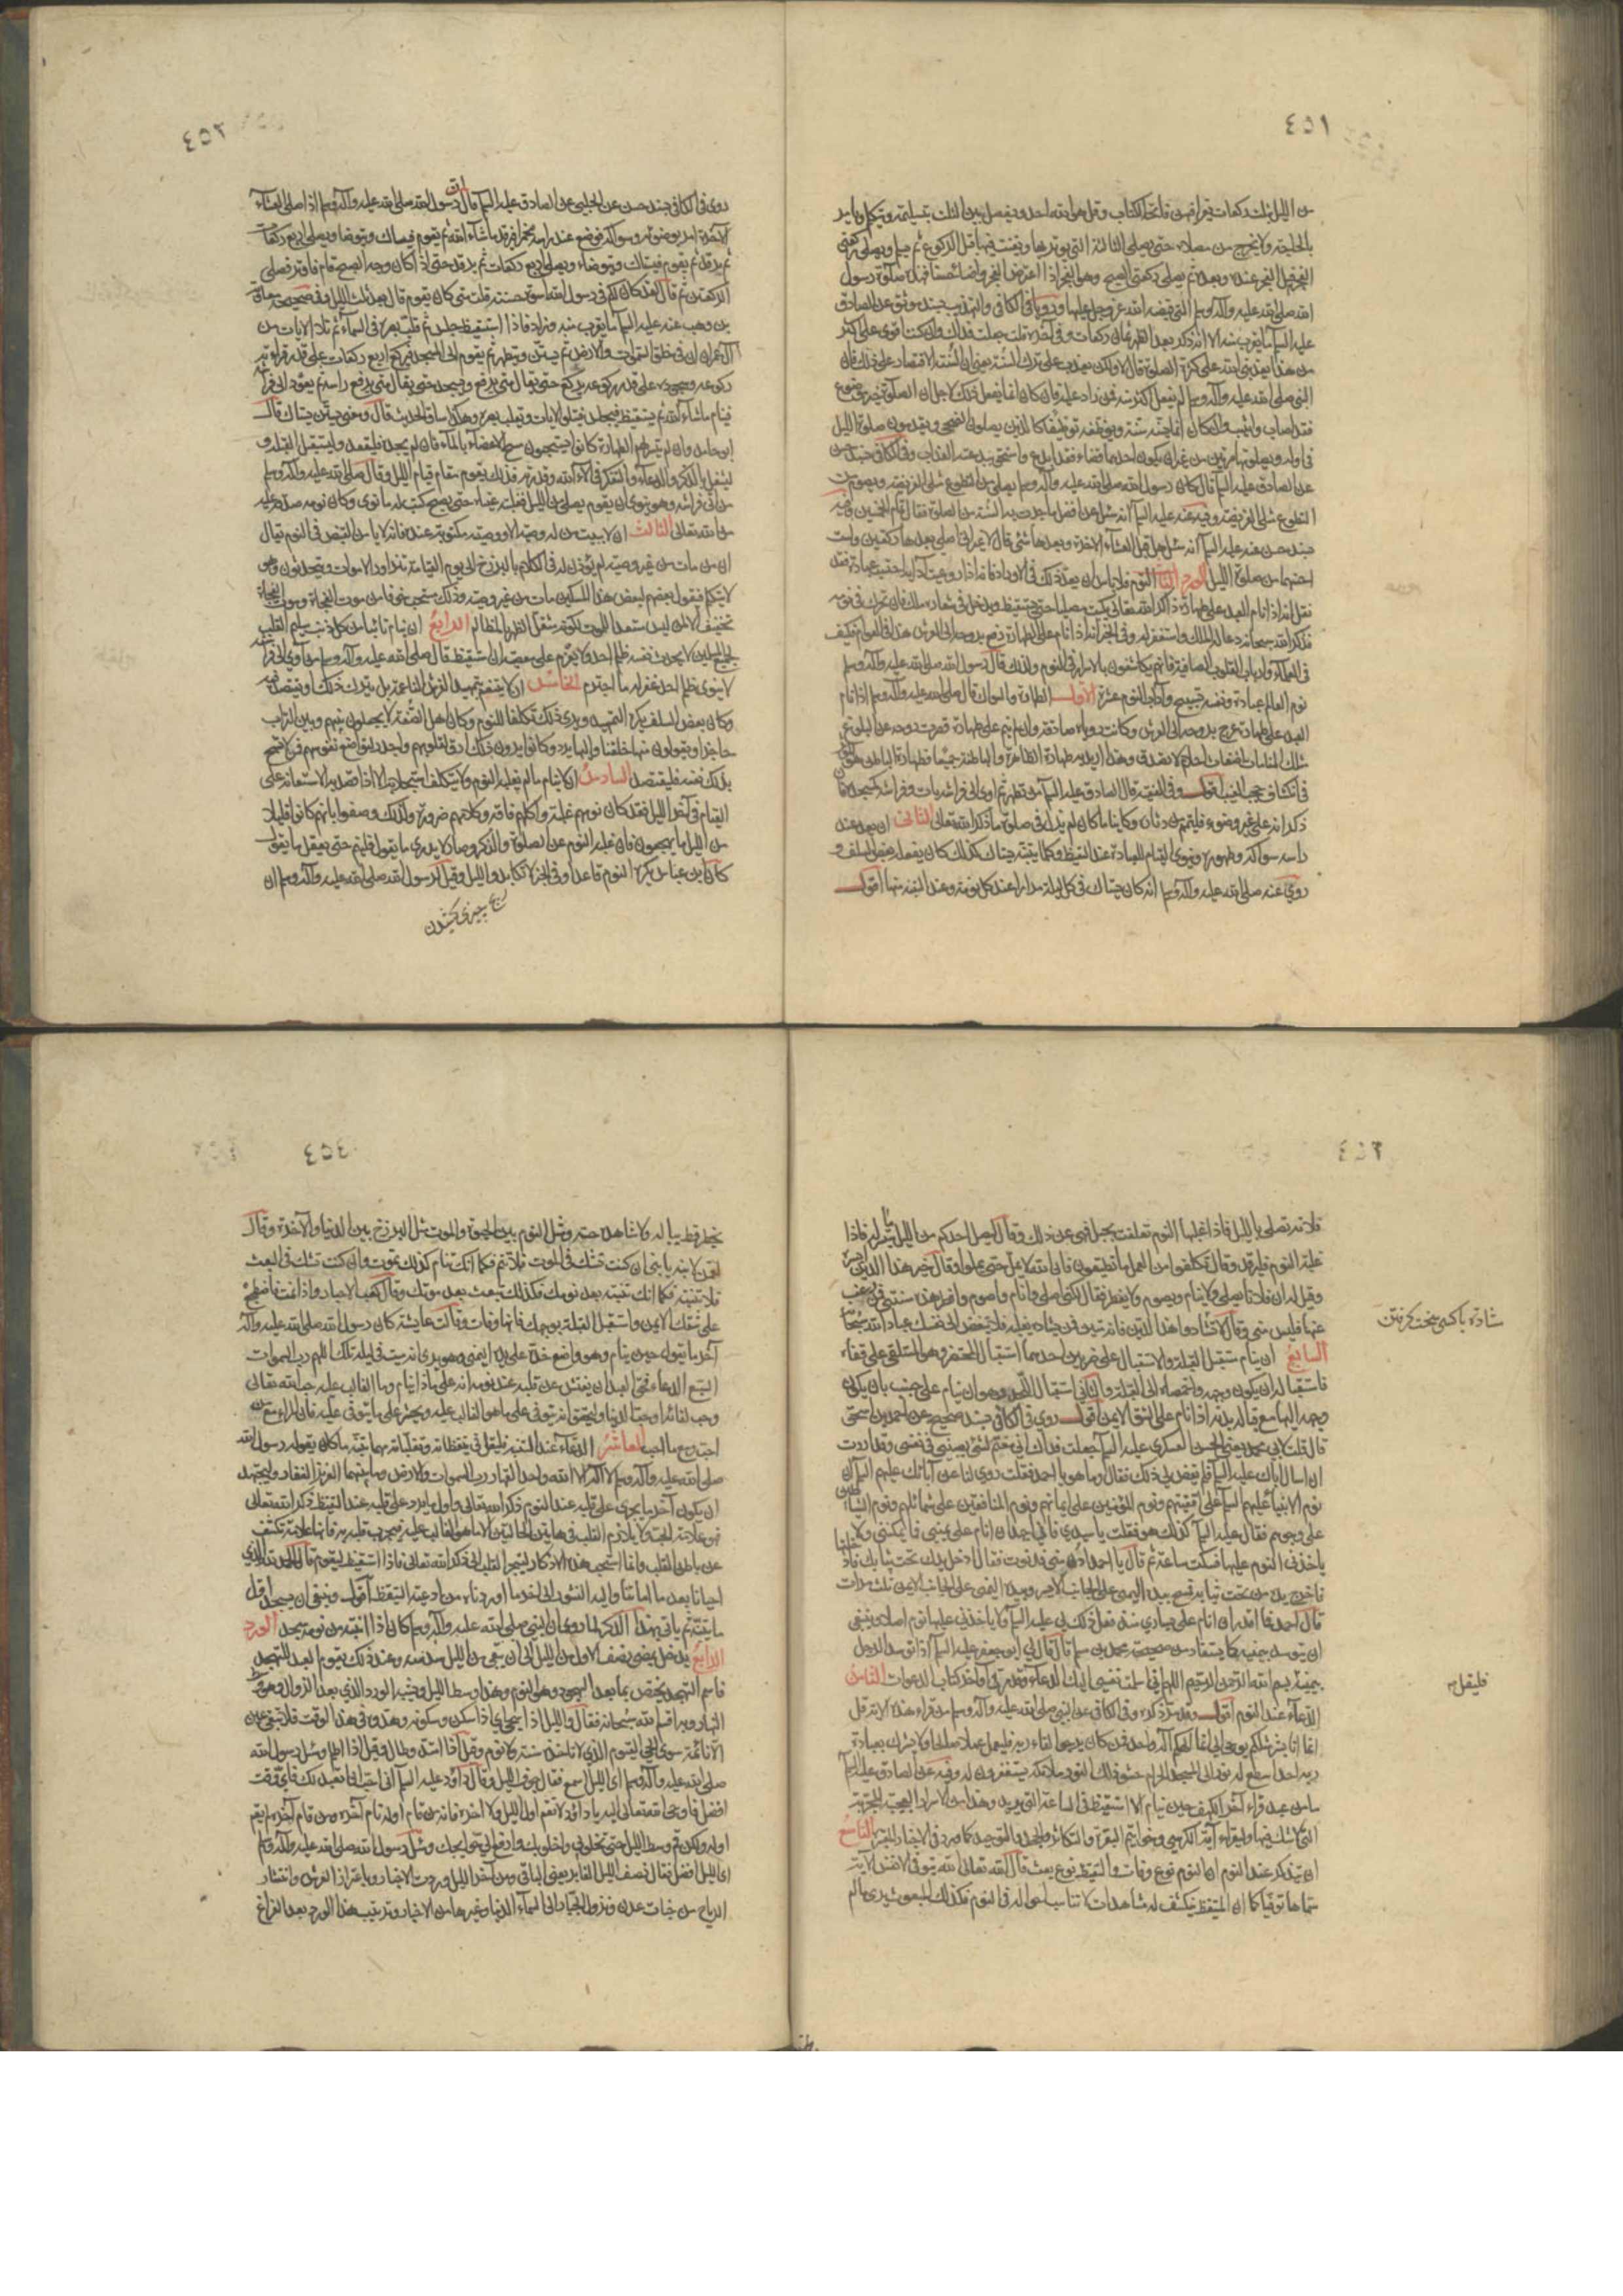 ٤٥١
من الليل ثلث ركعات يقرأ فيهن فاتحة الكتاب وقل هو الله احد ويفصل بين الثلث بتسليمة ويتكلم ويأمر
بالحاجة ولا يخرج من مصلاه حتى يصلي الثالثة التي يوتر بها ويقنت فيها قبل الركوع ثم يسلم ويصلي ركعتي
الفجر قبل الفجر وعنده وبعده ثم يصلي ركعتي الصبح وهو الفجر اذا اعترض الفجر واضاء حسنا فهذه صلوة رسول
الله صلى الله عليه وآله وسلم التي قبضه الله عز وجل عليها وروى في الكافي والتهذيب بسند موثق عن الصادق
من هذا يعذبني الله على كثرة الصلوة قال لا ولكن يعذب على ترك السنة
عن الصادق عليه السلم قال كان رسول الله صلى الله عليه وآله وسلم يصلي من التطوع مثلي الفريضة ويصوم من
التطوع مثلي الفريضة وفيه عنه عليه السلم انه سئل عن افضل ما جرت به السنة من الصلوة فقال تمام الخمسين
بسند حسن عنه عليه السلم انه سئل هل قبل العشاء الآخرة وبعدها شئ قال لا غير اني اصلي بعدها ركعتين ولست
احسبهما من صلوة الليل الورد الثالث النوم فلا باس ان يعد ذلك في الاوراد فانه اذا روعيت آدابه احتسب عبادة فقد
نوم العالم عبادة ونفسه تسبيح وآداب النوم عشرة الاول الطهارة والسواك قال صلى الله عليه وآله وسلم اذا نام
العبد على طهارة عرج بروحه الى العرش وكانت رؤياه صادقة وان لم ينم على طهارة قصرت روحه عن البلوغ
في انكشاف حجب الغيب اقول وفي الفقيه قال الصادق عليه السلم من تطهر ثم اوى الى فراشه بات وفراشه كمسجده فان
ذكر انه على غير وضوء فليتيمم من دثاره كائنا ما كان لم يزل في صلوة ما ذكر الله تعالى الثاني ان يعد عند
راسه سواكه وطهوره وينوي القيام للعبادة عند التيقظ وكلما يتنبه يستاك كذلك كان يفعله بعض السلف و
روي عنه صلى الله عليه وآله وسلم انه كان يستاك في كل ليلة مرارا عند كل نومة وعند التنبه منها اقول
٤٥٢
روى في الكافي بسند حسن عن الحلبي عن الصادق عليه السلم قال ان رسول الله صلى الله عليه وآله وسلم اذا صلى العشاء
الآخرة امر بوضوئه وسواكه فوضع عند راسه مخمرا فيرقد ما شاء الله ثم يقوم فيستاك ويتوضا ويصلي اربع ركعات
ثم يرقد ثم يقوم فيستاك ويتوضاء ويصلي اربع ركعات ثم يرقد حتى اذا كان وجه الصبح قام فاوتر فصلى
الركعتين ثم قال لقد كان لكم في رسول الله اسوة حسنة قلت متى كان يقوم قال بعد ثلث الليل وفي صحيح معوية
بن وهب عنه عليه السلم ما يقرب منه وزاد فاذا استيقظ جلس ثم قلب بصره في السماء ثم تلا الايات من
آل عمران ان في خلق السموات والارض ثم يستن ويتطهر ثم يقوم الى المسجد فيركع اربع ركعات على قدر قراءته
ركوعه وسجوده على قدر ركوعه يركع حتى يقال متى يرفع ويسجد حتى يقال متى يرفع راسه ثم يعود الى فراشه
فينام ما شاء الله ثم يستيقظ فيجلس فيتلو الايات ويقلب بصره وهكذا ساق الحديث قال ومعنى يستن يستاك قال
من الله تعالى الثالث ان لا يبيت من له وصية الا ووصيته مكتوبة عنده فانه لا يامن القبض في النوم يقال
ان من مات من غير وصية لم يؤذن له في الكلام بالبرزخ الى يوم القيامة تتزاور الاموات ويتحدثون وهو
لا يتكلم فيقول بعضهم لبعض هذا المسكين مات من غير وصية وذلك مستحب خوفا من موت الفجاة وموت الفجاة
تخفيف الا لمن ليس مستعدا للموت لكونه مثقل الظهر بالمظالم الرابع ان ينام تائبا من كل ذنب سليم القلب
لجميع المسلمين لا يحدث نفسه بظلم احد ولا يعزم على معصية ان استيقظ قال صلى الله عليه وآله وسلم من آوى الى فراشه
لا ينوي ظلم احد غفر له ما اجترم الخامس ان لا يتنعم بتمهيد الفرش الناعمة بل يترك ذلك او يقتصد فيه
وكان بعض السلف يكره التمهيد ويرى ذلك تكلفا للنوم وكان اهل الصفة لا يجعلون بينهم وبين التراب
حاجزا ويقولون منها خلقنا واليها نرد وكانوا يرون ذلك ارق لقلوبهم واجدر بتواضع نفوسهم فمن لا تسمح
بذلك نفسه فليقتصد السادس ان لا ينام ما لم يغلبه النوم ولا يتكلف استجلابه الا اذا قصد به الاستعانة على
القيام في آخر الليل فقد كان نومهم غلبة واكلهم فاقة وكلامهم ضرورة ولذلك وصفوا بانهم كانوا قليلا
من الليل ما يهجعون فان غلبه النوم عن الصلوة والذكر وصار لا يدري ما يقول فلينم حتى يعقل ما يقول
كان ابن عباس يكره النوم قاعدا وفي الخبر لا تكابدوا الليل وقيل لرسول الله صلى الله عليه وآله وسلم ان
رنج چيزى كشيدن
٤٥٣
فلانة تصلي بالليل فاذا غلبها النوم تعلقت بحبل فنهى عن ذلك وقال ليصل احدكم من الليل ما تيسر له فاذا
غلبه النوم فليرقد وقال تكلفوا من العمل ما تطيقون فان الله لا يمل حتى تملوا وقال خير هذا الدين ايسره
وقيل له ان فلانا يصلي ولا ينام ويصوم ولا يفطر فقال لكني اصلي وانام واصوم وافطر هذه سنتي فمن رغب
عنها فليس مني وقال لا تشادوا هذا الدين فانه متين فمن يشاده يغلبه فلا تبغض الى نفسك عبادة الله سبحانه
مشادة با كسى سخت گرفتن
السابع ان ينام مستقبل القبلة والاستقبال على ضربين احدهما استقبال المحتضر وهو المستلقي على قفاه
فاستقباله ان يكون وجهه واخمصاه الى القبلة والثاني استقبال اللحد وهو ان ينام على جنب بان يكون
وجهه اليها مع قبالة بدنه اذا نام على الشق الايمن اقول روى في الكافي بسند صحيح عن احمد بن اسحق
قال قلت لابي محمد يعني الحسن العسكري عليه السلم جعلت فداك اني مغتم لشئ يصيبني في نفسي وقد اردت
ان اسال اباك عليه السلم فلم يقض لي ذلك فقال وما هو يا احمد فقلت روي لنا عن آبائك عليهم السلم ان
نوم الانبياء عليهم السلم على اقفيتهم ونوم المؤمنين على ايمانهم ونوم المنافقين على شمائلهم ونوم الشياطين
على وجوههم فقال عليه السلم كذلك هو فقلت يا سيدي فاني اجهد ان انام على يميني فما يمكنني ولا
ياخذني النوم عليها فسكت ساعة ثم قال يا احمد ادن مني فدنوت فقال ادخل يدك تحت ثيابك فادخلتها
فاخرج يده من تحت ثيابه فمسح بيده اليمنى على جانبي الايسر وبيده اليسرى على جانبي الايمن ثلث مرات
قال احمد فما اقدر ان انام على يساري منذ فعل ذلك بي عليه السلم ولا ياخذني عليها نوم اصلا وينبغي
ان يتوسد يمينه كما يستفاد من صحيحة محمد بن مسلم قال قال لي ابو جعفر عليه السلم اذا توسد الرجل
يمينه بسم الله الرحمن الرحيم اللهم اني اسلمت نفسي اليك الدعاء وقد مر في آخر كتاب الدعوات الثامن
فليقل
الدعاء عند النوم اقول وقد مر ذكره وفي الكافي عن النبي صلى الله عليه وآله وسلم من قراء هذه الاية قل
انما انا بشر مثلكم يوحى الي انما الهكم اله واحد فمن كان يرجوا لقاء ربه فليعمل عملا صالحا ولا يشرك بعبادة
ربه احدا سطع له نور الى المسجد الحرام حشو ذلك النور ملائكة يستغفرون له وفيه عن الصادق عليه السلم
ما من عبد قراء آخر الكهف حين ينام الا استيقظ في الساعة التي يريد وهذا من الاسرار العجيبة المجربة
التي لا شك فيها وليقراء آية الكرسي وخواتيم البقرة والتكاثر والجحد والتوحيد كما ورد في الاخبار المعتبرة التاسع
ان يتذكر عند النوم ان النوم نوع وفات والتيقظ نوع بعث قال الله تعالى الله يتوفى الانفس الآية
سماها توفيا كما ان المتيقظ ينكشف له مشاهدات لا تناسب احواله في النوم فكذلك المبعوث يرى ما لم
٤٥٤
يخطر قط بباله ولا شاهده حسه ومثل النوم بين الحيوة والموت مثل البرزخ بين الدنيا والآخرة وقال
لقمن لابنه يا بني ان كنت تشك في الموت فلا تنم فكما انك تنام كذلك تموت وان كنت تشك في البعث
فلا تنتبه فكما انك تنتبه بعد نومك فكذلك تبعث بعد موتك وقال كعب الاحبار واذا نمت فاضطجع
على شقك الايمن واستقبل القبلة بوجهك فانها وفات وقالت عايشة كان رسول الله صلى الله عليه وآله
آخر ما يقوله حين ينام وهو واضع خده على يده اليمنى وهو يرى انه ميت في ليلته تلك اللهم رب السموات
السبع الدعاء فحق العبد ان يفتش عن قلبه عند نومه انه على ماذا ينام وما الغالب عليه حب الله تعالى
وحب لقائه او حب الدنيا وليتحقق انه يتوفى على ما هو الغالب عليه ويحشر على ما يتوفى عليه فان المرء مع من
احب ومع ما احب العاشر الدعاء عند التنبه فليقل في يقظاته وتقلباته مهما تنبه ما كان يقوله رسول الله
صلى الله عليه وآله وسلم لا اله الا الله الواحد القهار رب السموات والارض وما بينهما العزيز الغفار وليجتهد
ان يكون آخر ما يجري على قلبه عند النوم ذكر الله تعالى واول ما يرد على قلبه عند التيقظ ذكر الله تعالى
فهو علامة الحب ولا يلازم القلب في هاتين الحالتين الا ما هو الغالب عليه فليجرب قلبه به فانها علامة تكشف
عن باطن القلب وانما استحب هذه الاذكار لينجر القلب الى ذكر الله تعالى فاذا استيقظ ليقوم قال الحمد لله الذي
احيانا بعد ما اماتنا واليه النشور الى آخر ما اوردناه من ادعية التيقظ اقول وينبغي ان يسجد اول
ما يتنبه ثم ياتي بهذا الذكر لما روي ان النبي صلى الله عليه وآله وسلم كان اذا انتبه من نومه يسجد الورد
الرابع يدخل بمضي نصف الاول من الليل الى ان يبقى من الليل سدسه وعند ذلك يقوم العبد للتهجد
فاسم التهجد يختص بما بعد الهجود وهو النوم وهذا وسط الليل ويشبه الورد الذي بعد الزوال وهو وسط
النهار وبه اقسم الله سبحانه فقال والليل اذا سجى اي اذا سكن وسكونه وهدوه في هذا الوقت فلا تبقى عين
الا نائمة سوى الحي القيوم الذي لا تاخذه سنة ولا نوم وقيل اذا امتد وطال وقيل اذا اظلم وسئل رسول الله
صلى الله عليه وآله وسلم اي الليل اسمع فقال جوف الليل وقال داود عليه السلم الهي اني احب ان اتعبد لك فاي وقت
افضل فاوحى الله تعالى اليه يا داود لا تقم اول الليل ولا آخره فانه من قام اوله نام آخره ومن قام آخره لم يقم
اوله ولكن قم وسط الليل حتى تخلو بي واخلو بك وارفع الي حوائجك وسئل رسول الله صلى الله عليه وآله وسلم
اي الليل افضل فقال نصف الليل الغابر يعني الباقي ومن آخر الليل وردت الاخبار وباهتزاز العرش وانتشار
الرياح من جنات عدن ونزول الجبار الى السماء الدنيا وغيرها من الاخبار وترتيب هذا الورد بعد الفراغ